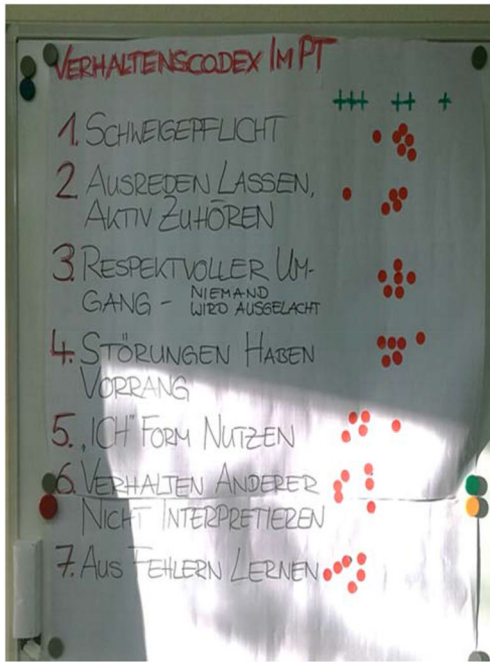 VERHALTENSCODEX IM PT
+++ ++ +
1. SCHWEIGEPFLICHT
2. AUSREDEN LASSEN,
AKTIV ZUHÖREN
3. RESPEKTVOLLER UM-
GANG - NIEMAND
WIRD AUSGELACHT
4. STÖRUNGEN HABEN
VORRANG
5. „ICH" FORM NUTZEN
6. VERHALTEN ANDERER
NICHT INTERPRETIEREN
7. AUS FEHLERN LERNEN